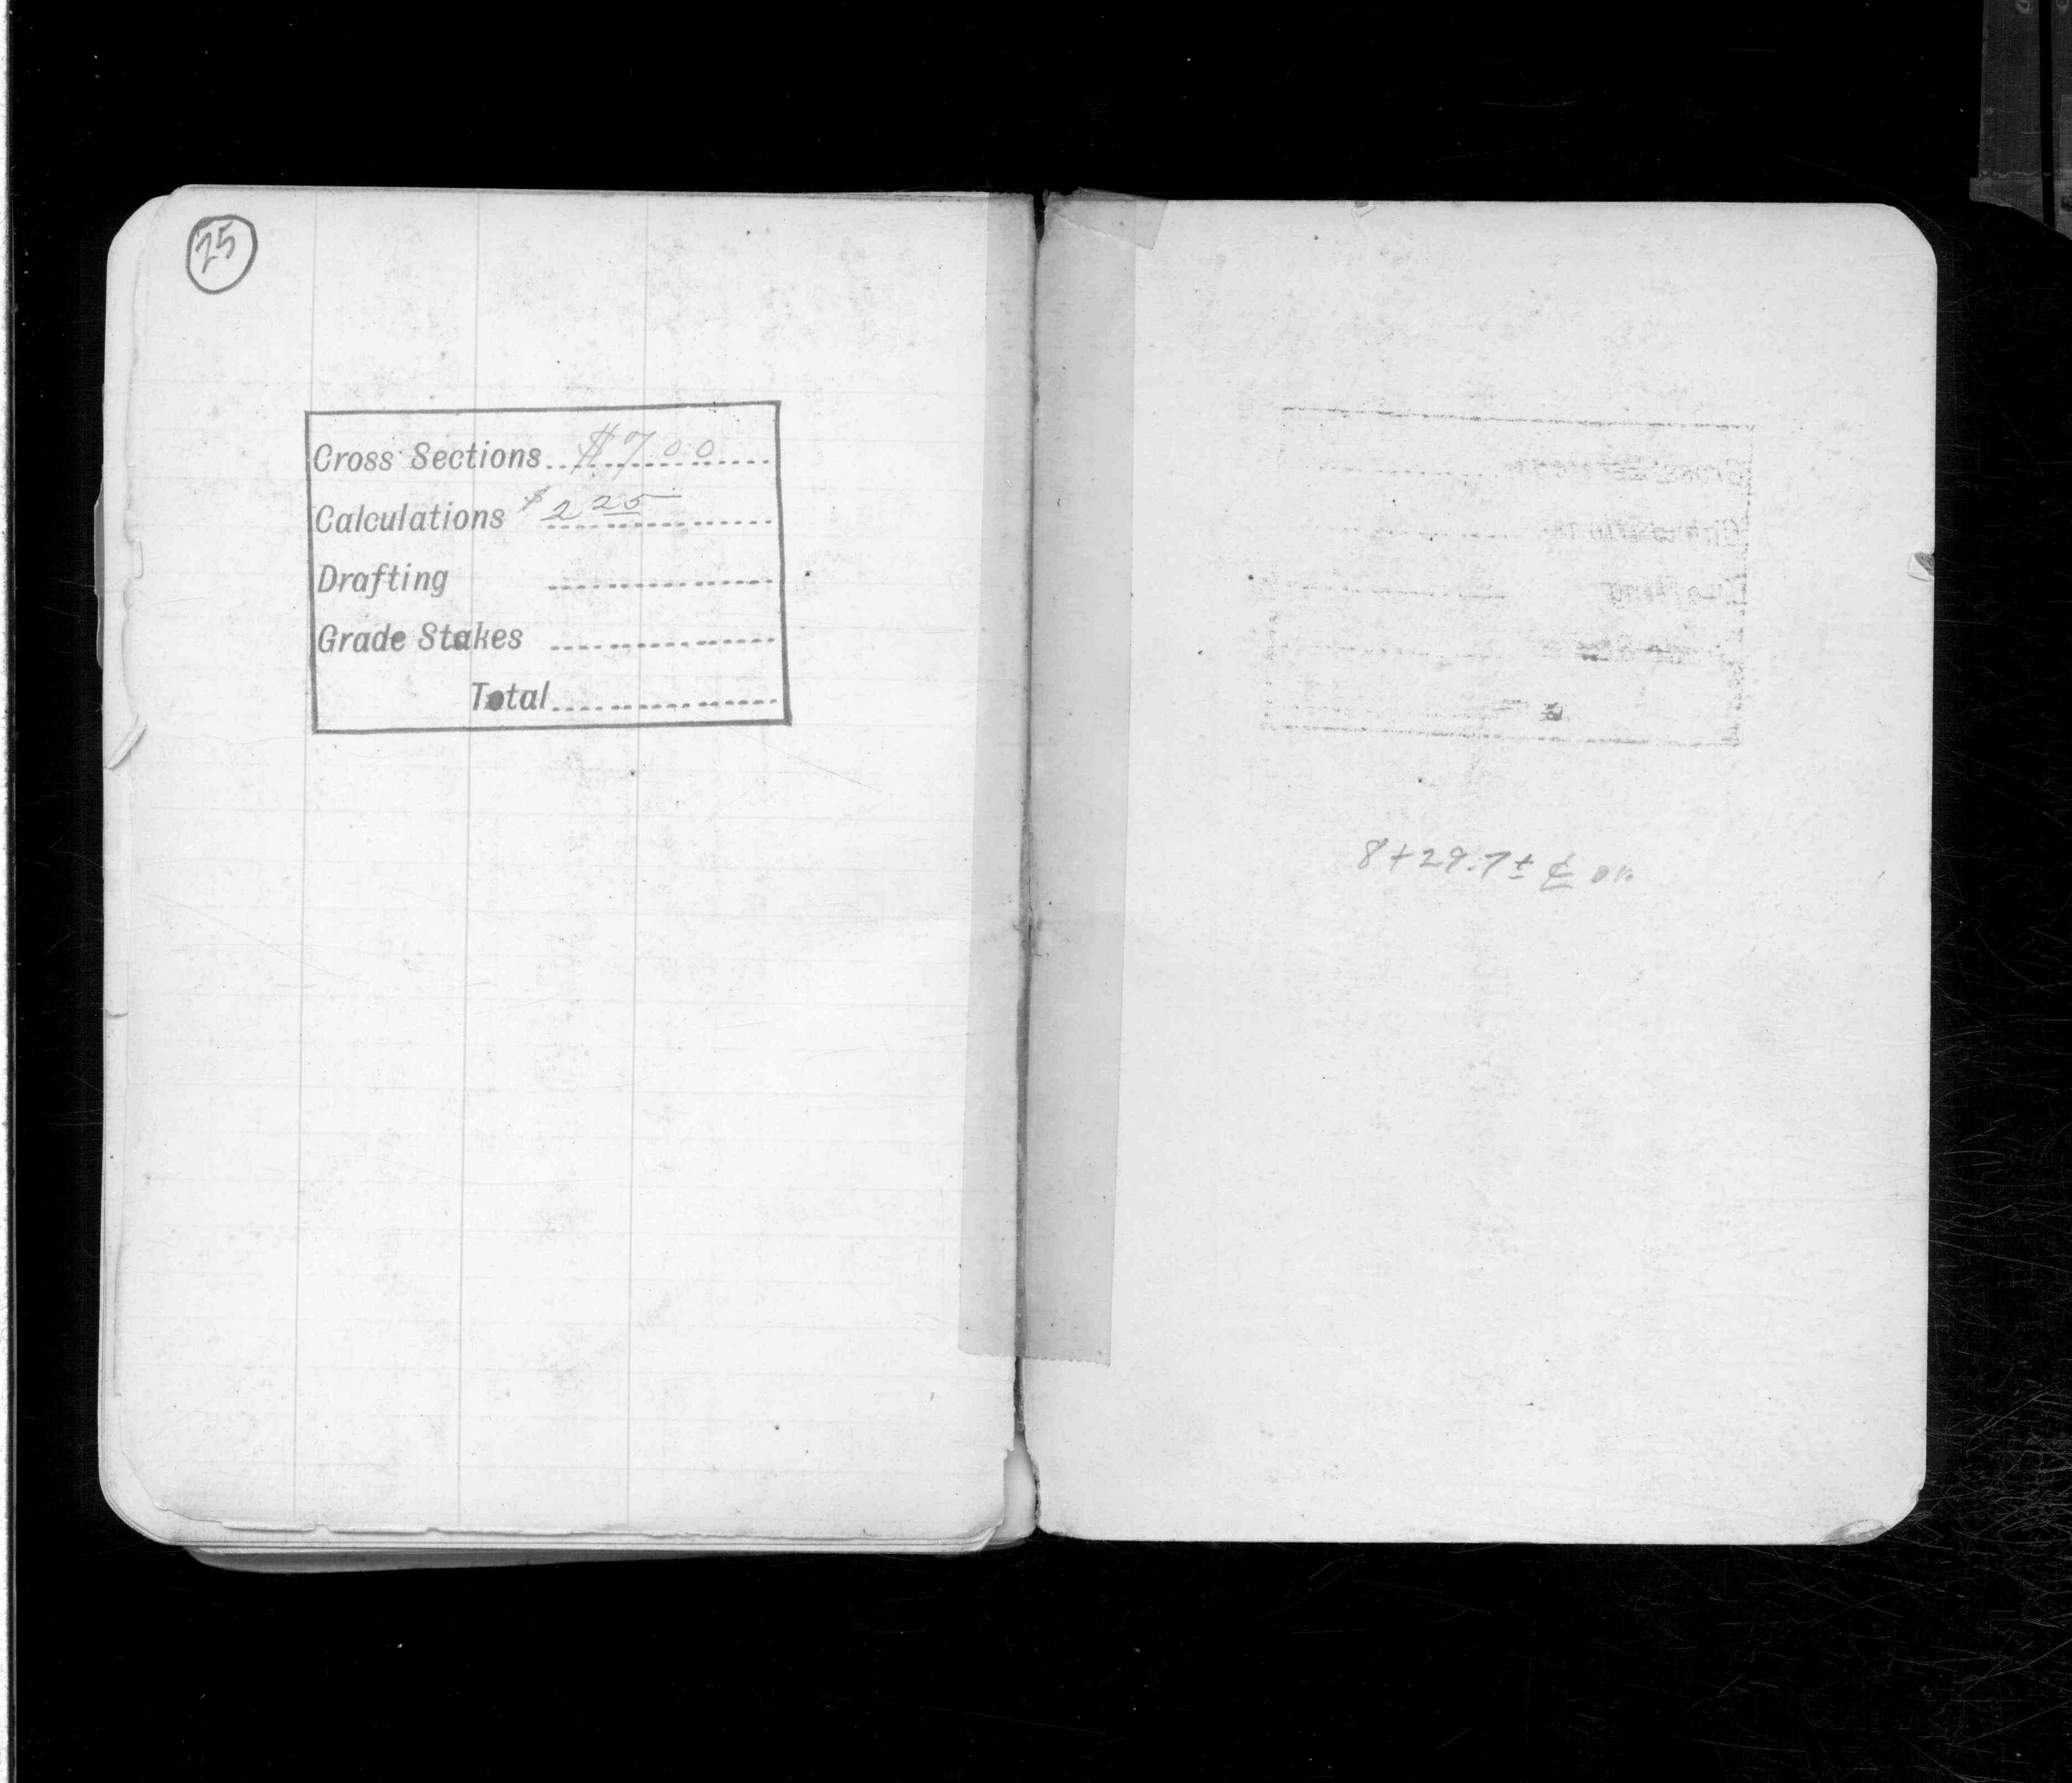 25
Cross Sections $7 00
Calculations $2 25
Drafting
Grade Stakes
Total
8+29.7± ℄ on